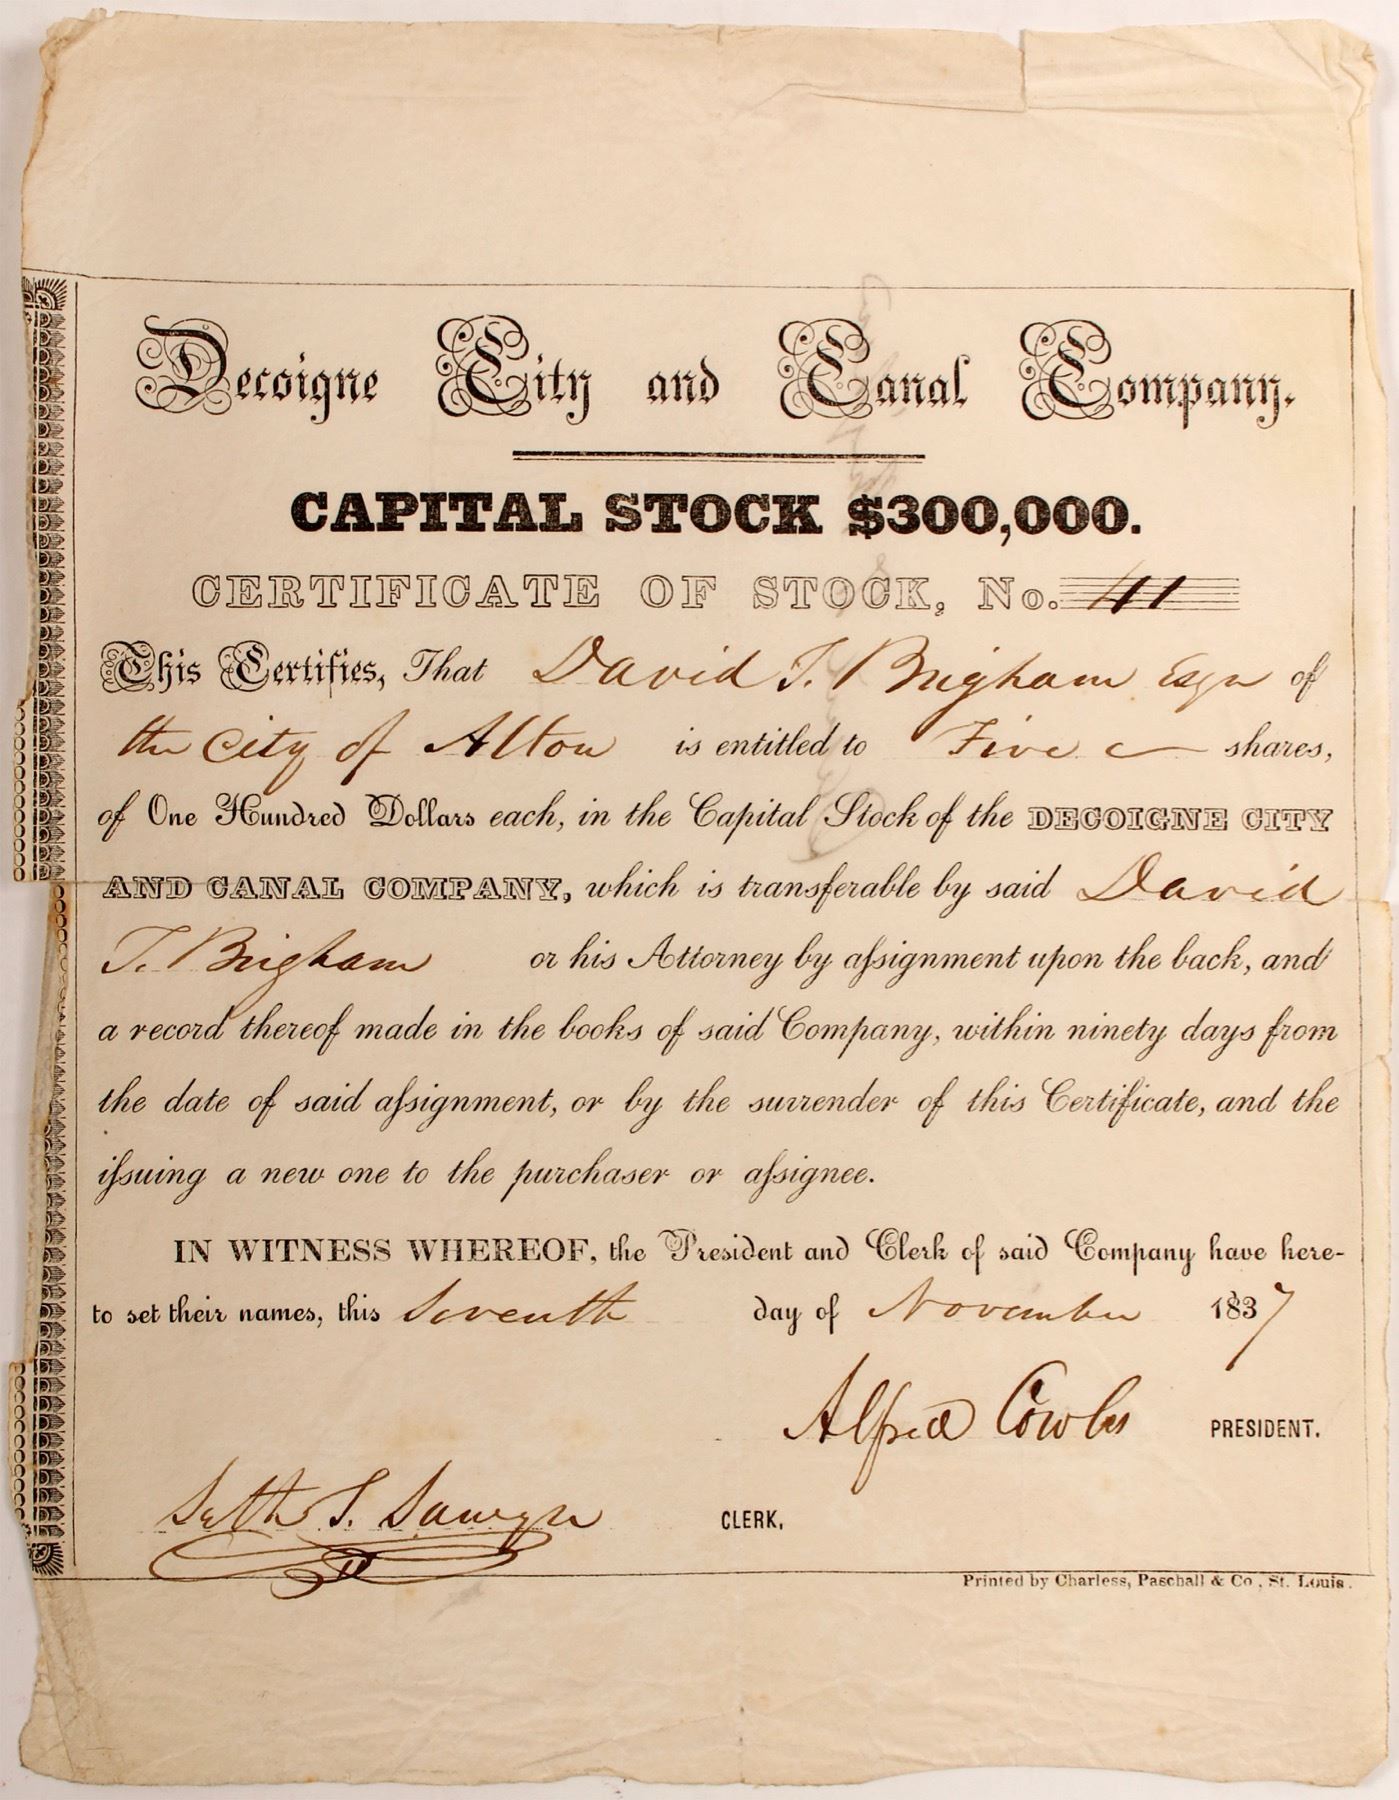 Decoigne City and Canal Company.
CAPITAL STOCK $300,000.
CERTIFICATE OF STOCK, No. 41
This Certifies, That David T. Brigham Esqr of
the City of Alton is entitled to Five shares,
of One Hundred Dollars each, in the Capital Stock of the DECOIGNE CITY
AND CANAL COMPANY, which is transferable by said David
T. Brigham or his Attorney by aſsignment upon the back, and
a record thereof made in the books of said Company, within ninety days from
the date of said aſsignment, or by the surrender of this Certificate, and the
iſsuing a new one to the purchaser or aſsignee.
IN WITNESS WHEREOF, the President and Clerk of said Company have here-
to set their names, this Seventh day of November 1837
Alfred Cowles PRESIDENT.
Seth T. Sawyer CLERK,
Printed by Charless, Paschall & Co, St. Louis.